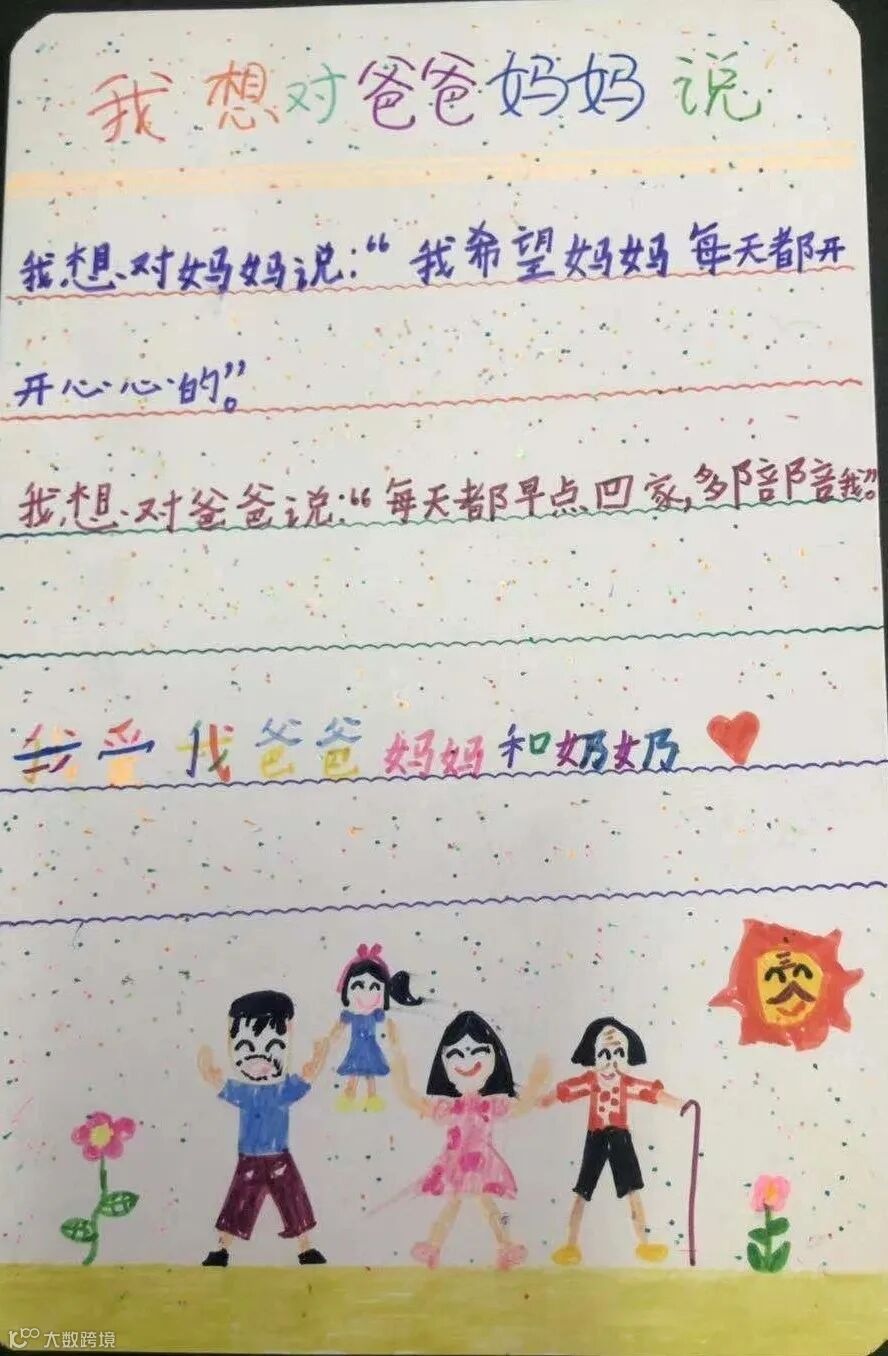 我想对爸爸妈妈说
我想对妈妈说:“我希望妈妈每天都开
开心心的”。
我想对爸爸说:“每天都早点回家,多陪陪我”。
我爱我爸爸妈妈和奶奶
大数跨境